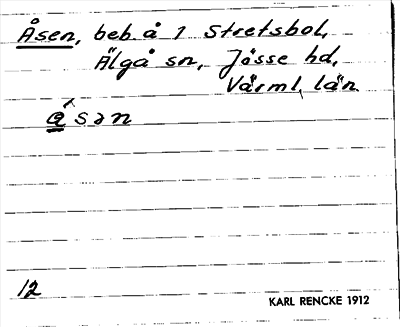 Åsen, beb å 1 Stretsbol,
Älgå sn, Jösse hd,
Värml. län.
åsən
12
KARL RENCKE 1912